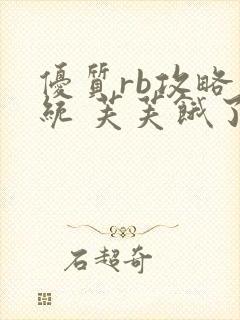 優質rb攻略
統 芙芙餓了
石超奇